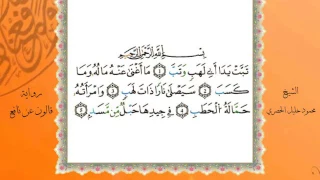 بِسْمِ اللَّهِ الرَّحْمَنِ الرَّحِيمِ
تَبَّتْ يَدَا أَبِي لَهَبٍ وَتَبَّ ١ مَا أَغْنَى عَنْهُ مَالُهُ وَمَا
كَسَبَ ٢ سَيَصْلَى نَارًا ذَاتَ لَهَبٍ ٣ وَامْرَأَتُهُ
حَمَّالَةُ الْحَطَبِ ٤ فِي جِيدِهَا حَبْلٌ مِّن مَّسَدٍ ٥
الشيخ
محمود خليل الحصري
رواية
قالون عن نافع